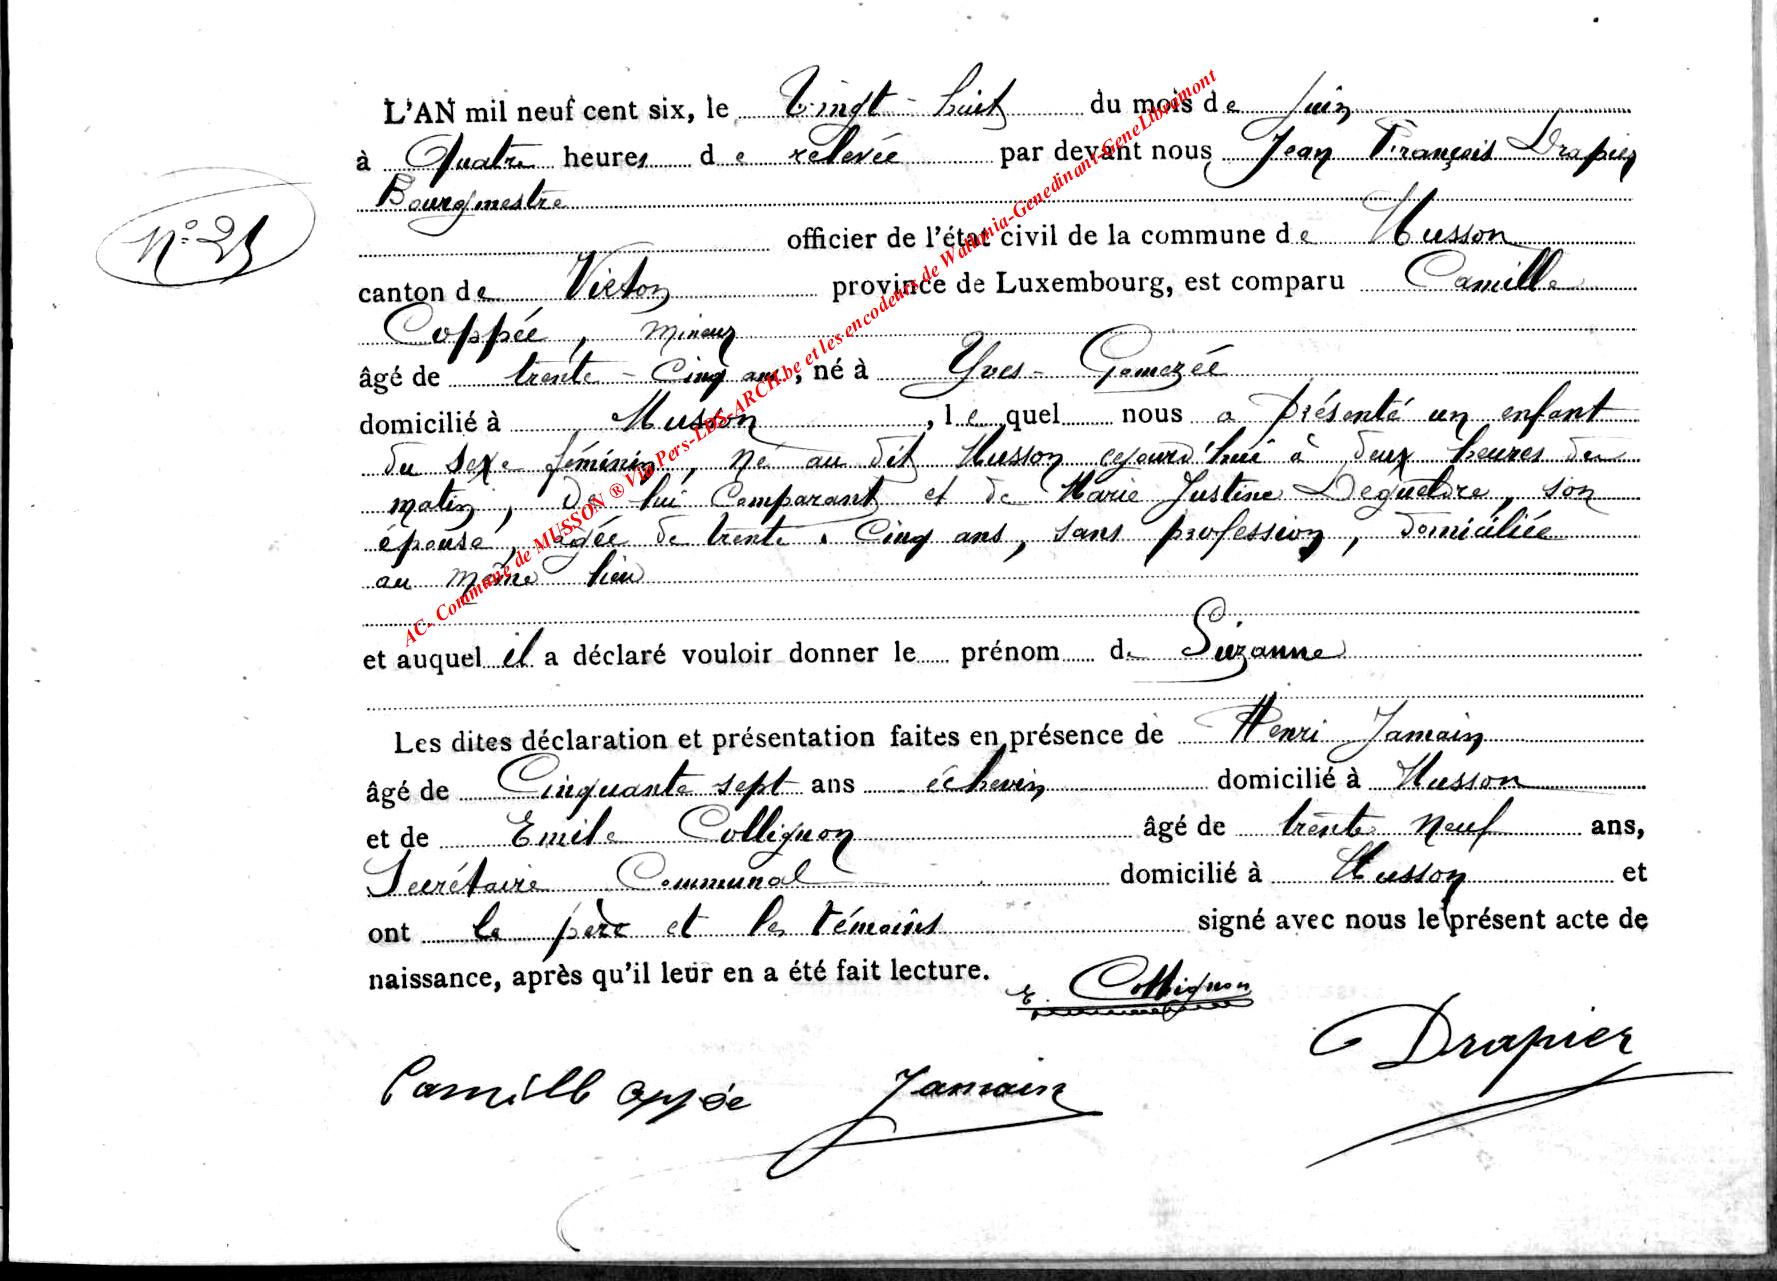 L'AN mil neuf cent six, le Vingt-huit du mois de Juin
à Quatre heures de relevée par devant nous Jean François Drapier
Bourgmestre
officier de l'état civil de la commune de Musson
N°
canton de Virton province de Luxembourg, est comparu Camille
Coppée, mineur
âgé de trente-Cinq ans, né à Yves-Gomezée
domicilié à Musson, lequel nous a présenté un enfant
du sexe féminin, né au dit Musson cejourd'hui à deux heures du
matin, de lui Comparant et de Marie Justine Degueldre, son
épouse, agée de trente-Cinq ans, sans profession, domiciliée
au même lieu
et auquel il a déclaré vouloir donner le prénom de Suzanne
Les dites déclaration et présentation faites en présence de Henri Jamain
âgé de Cinquante sept ans échevin domicilié à Musson
et de Emile Collignon âgé de trente neuf ans,
Secrétaire Communal domicilié à Musson et
ont le père et les témoins signé avec nous le présent acte de
naissance, après qu'il leur en a été fait lecture.
E. Collignon
Camille Coppée Jamain Drapier
AC- Commune de MUSSON ® Via Pers-LDS-ARCH.be et les encodeurs de Wallonia-Genedinant-GeneLibramont